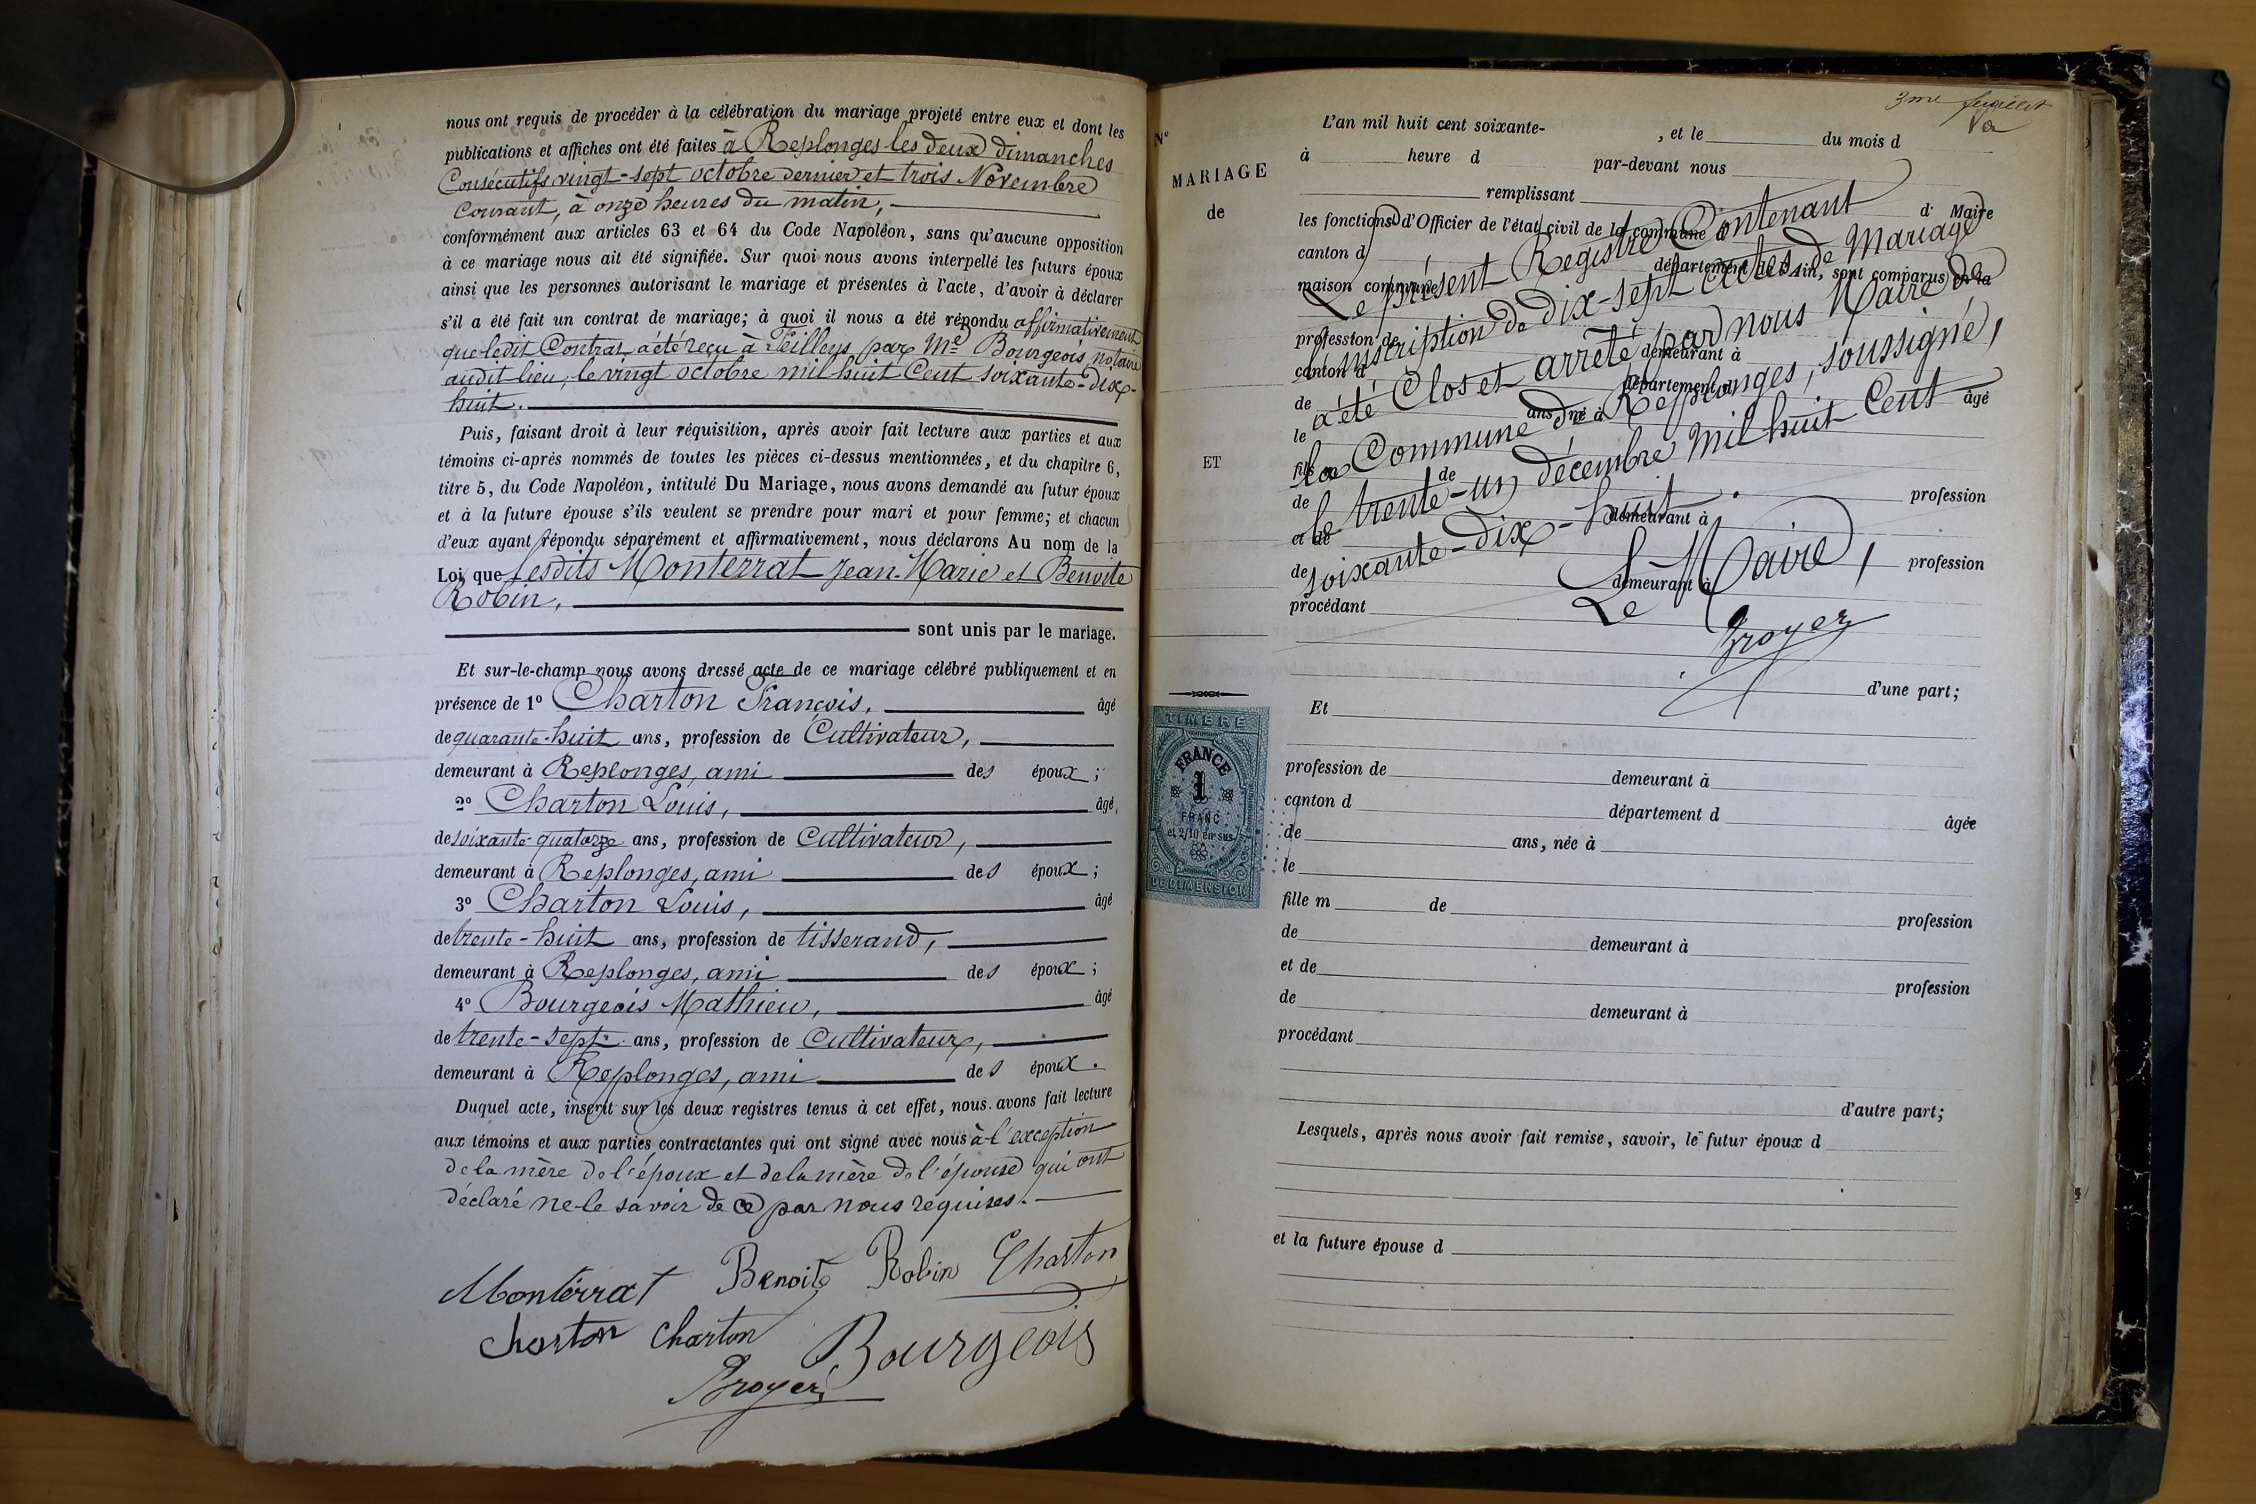 nous ont requis de procéder à la célébration du mariage projeté entre eux et dont les
publications et affiches ont été faites à Replonges les deux dimanches
Consécutifs vingt-sept octobre dernier et trois Novembre
Courant, à onze heures du matin,
conformément aux articles 63 et 64 du Code Napoléon, sans qu'aucune opposition
à ce mariage nous ait été signifiée. Sur quoi nous avons interpellé les futurs époux
ainsi que les personnes autorisant le mariage et présentes à l'acte, d'avoir à déclarer
s'il a été fait un contrat de mariage; à quoi il nous a été répondu affirmativement
que ledit Contrat a été reçu à Feillens par Me Bourgeois notaire
audit lieu, le vingt octobre mil huit Cent soixante-dix-
huit.
Puis, faisant droit à leur réquisition, après avoir fait lecture aux parties et aux
témoins ci-après nommés de toutes les pièces ci-dessus mentionnées, et du chapitre 6,
titre 5, du Code Napoléon, intitulé Du Mariage, nous avons demandé au futur époux
et à la future épouse s'ils veulent se prendre pour mari et pour femme; et chacun
d'eux ayant répondu séparément et affirmativement, nous déclarons Au nom de la
Loi que lesdits Monterrat Jean-Marie et Benoite
Robin,
sont unis par le mariage.
Et sur-le-champ nous avons dressé acte de ce mariage célébré publiquement et en
présence de 1º Charton François, âgé
de quarante-huit ans, profession de Cultivateur,
demeurant à Replonges, ami des époux;
2º Charton Louis, âgé
de soixante-quatorze ans, profession de Cultivateur,
demeurant à Replonges, ami des époux;
3º Charton Louis, âgé
de trente-huit ans, profession de tisserand,
demeurant à Replonges, ami des époux;
4º Bourgeois Mathieu, âgé
de trente-sept ans, profession de Cultivateur,
demeurant à Replonges, ami des époux.
Duquel acte, inscrit sur les deux registres tenus à cet effet, nous avons fait lecture
aux témoins et aux parties contractantes qui ont signé avec nous à l'exception
de la mère de l'époux et de la mère de l'épouse qui ont
déclaré ne le savoir de ce par nous requises.
Monterrat Benoite Robin Charton
Charton Charton Bourgeois
Broyer
3me
Nº
MARIAGE
de
ET
L'an mil huit cent soixante- , et le du mois d
à heure d par-devant nous
remplissant
les fonctions d'Officier de l'état civil de la commune d d' Maire
canton d département de l'Ain, sont comparus en la
maison commune
profession de demeurant à
canton d département d
de ans né à âgé
le
fils m de
de demeurant à profession
et de
de demeurant à profession
procédant
Le présent Registre Contenant
l'inscription de dix-sept actes de Mariage
a été Clos et arrêté par nous Maire de
la Commune de Replonges, soussigné,
le trente-un décembre mil huit Cent
soixante-dix-huit.
Le Maire,
Broyer
d'une part;
TIMBRE
FRANCE
1
FRANC
et 2/10 en sus
DE DIMENSION
Et
profession de demeurant à
canton d département d
de ans, née à âgée
le
fille m de
de demeurant à profession
et de
de demeurant à profession
procédant
d'autre part;
Lesquels, après nous avoir fait remise, savoir, le futur époux d
et la future épouse d